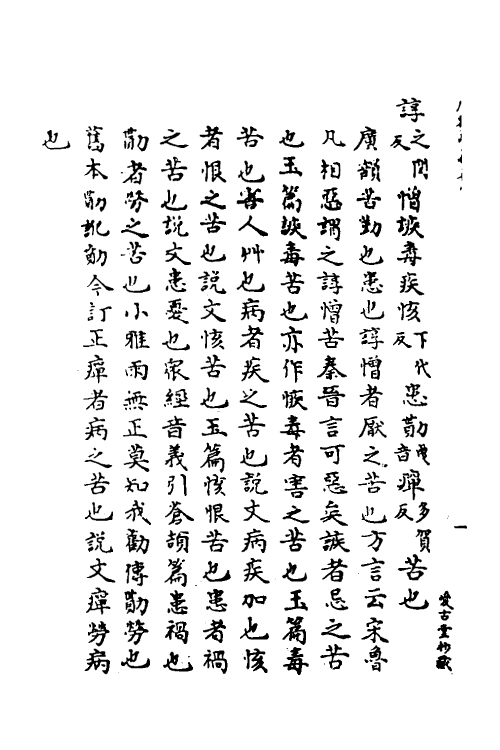 諄之閏反憎諔毒疾恔下代反患勤曳音癉多賀反苦也
廣韻苦勤也患也諄憎者厭之苦也方言云宋魯
凡相惡謂之諄憎苦秦晉言可惡矣諔者忌之苦
也玉篇諔毒苦也亦作惐毒者害之苦也玉篇毒
苦也害人艸也病者疾之苦也說文病疾加也恔
者恨之苦也說文恔苦也玉篇恔恨苦也患者禍
之苦也說文患憂也衆經音義引蒼頡篇患禍也
勩者勞之苦也小雅雨無正莫知我勩傳勩勞也
舊本勩訛勚今訂正癉者病之苦也說文癉勞病
也
愛古堂抄藏